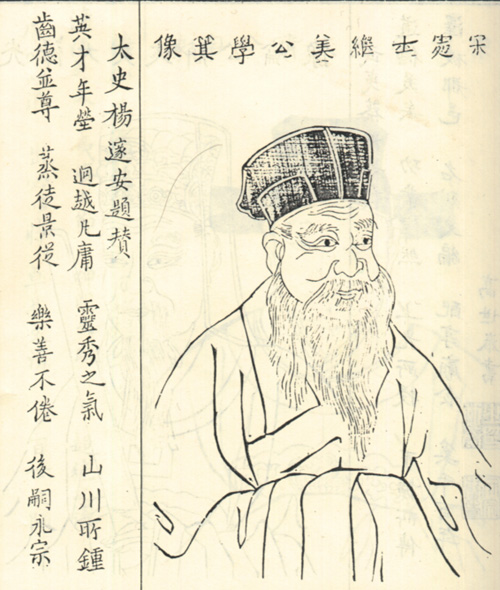 宋處士繼美公學箕像
太史楊邃安題賛
英才年塋 迥越凡庸 靈秀之氣 山川所鍾
齒德並尊 蒸徒景從 樂善不倦 後嗣永宗